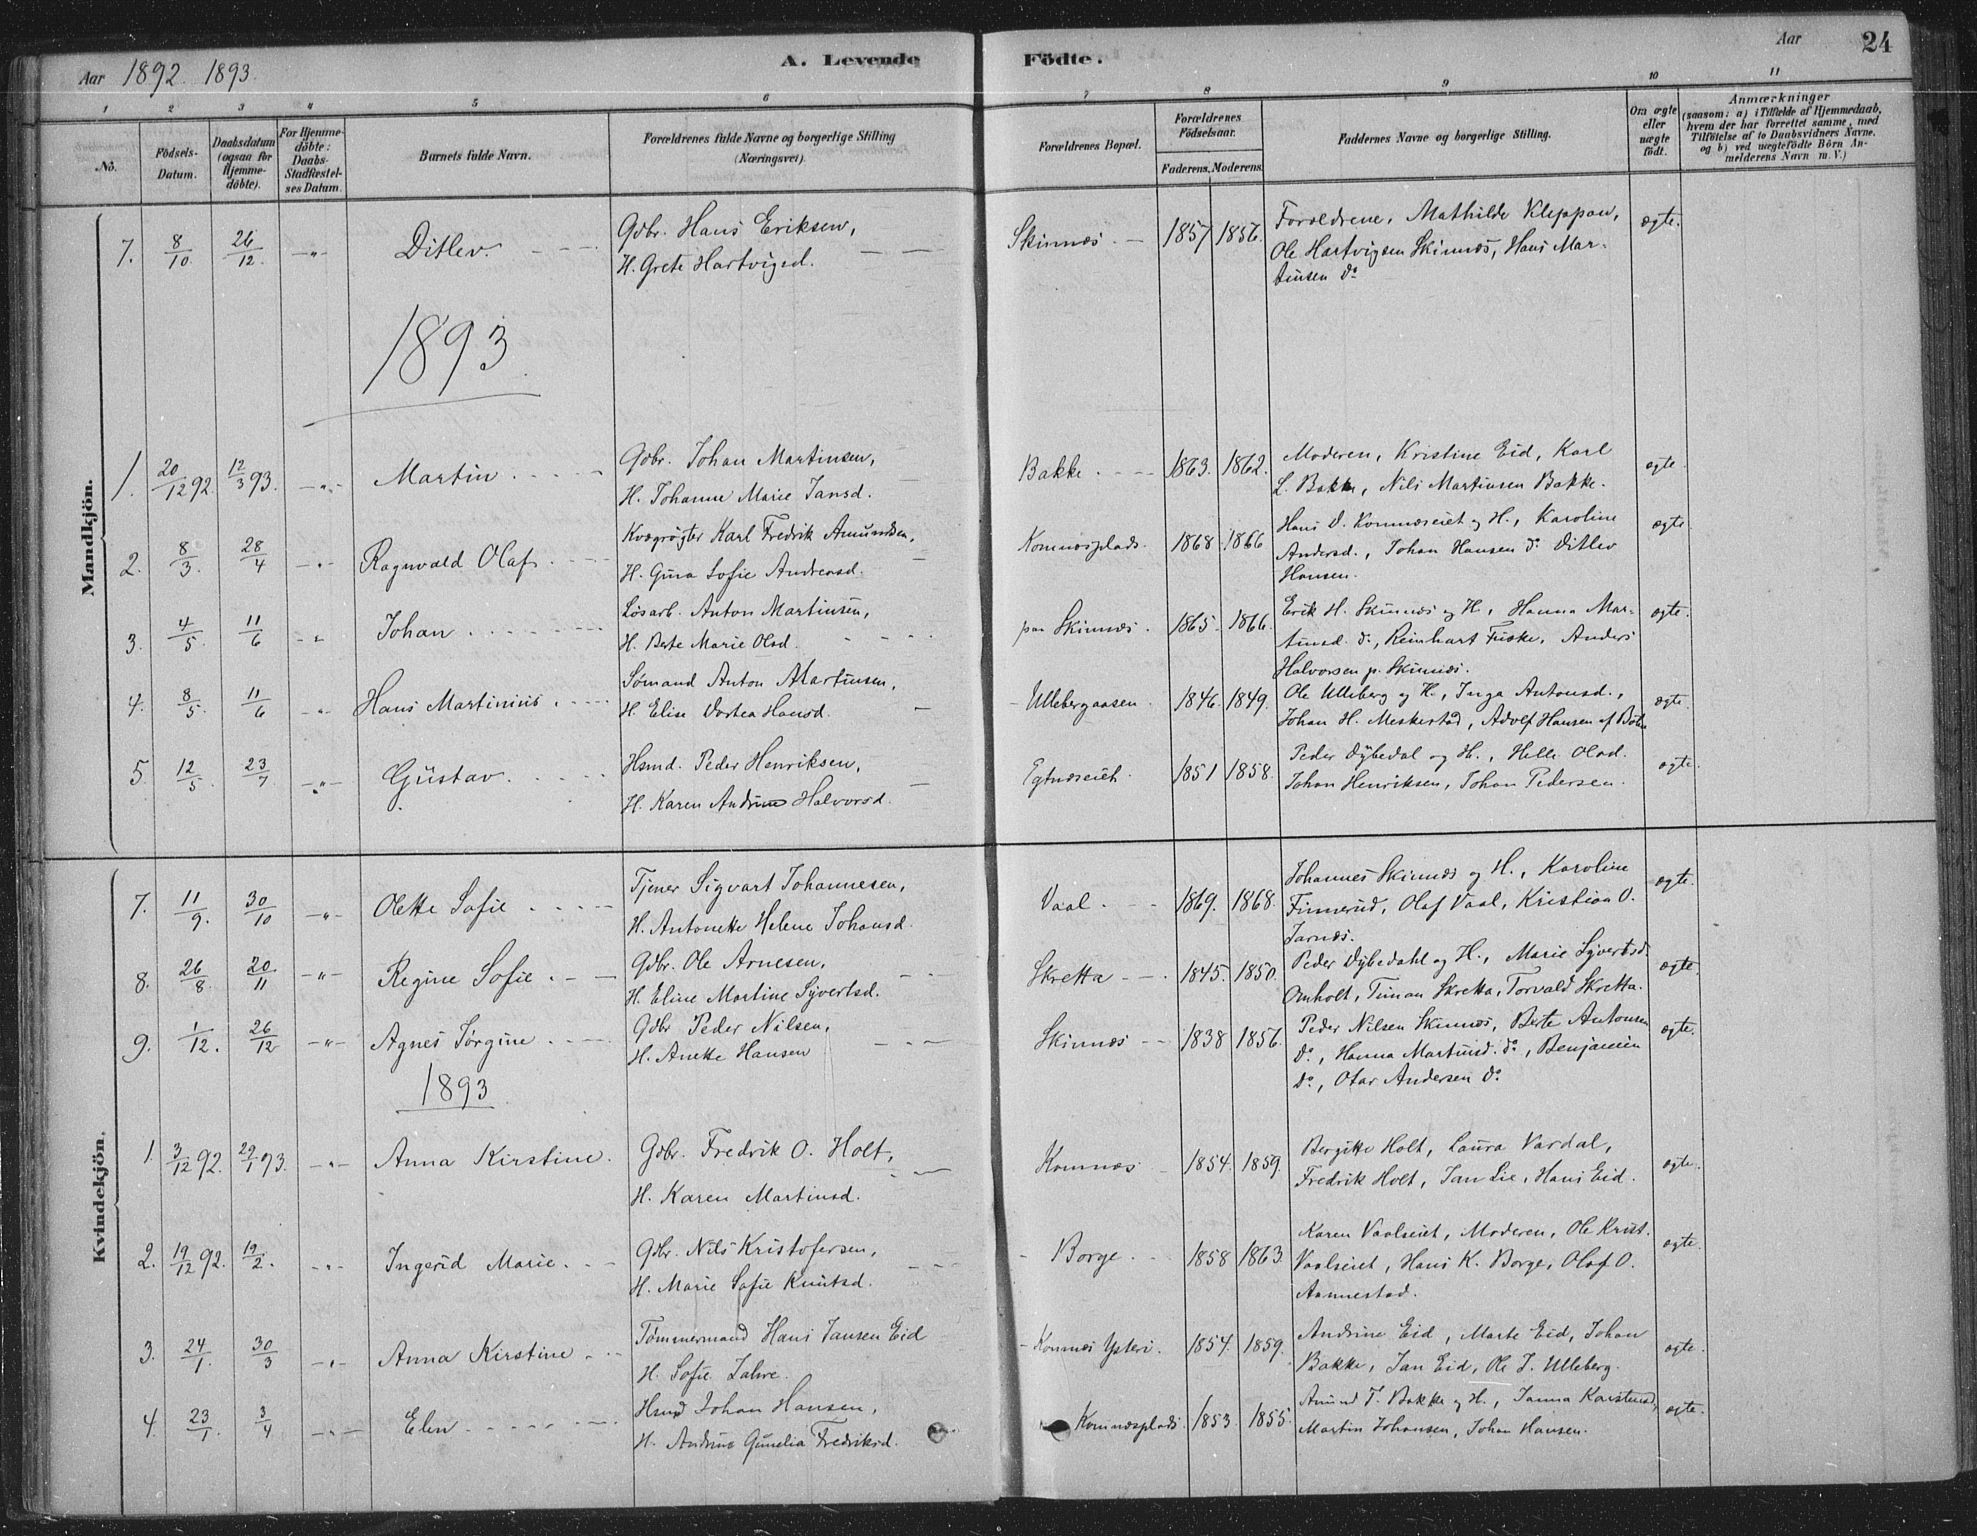 Aar 1892. 1893.
A. Levende Födte.
Aar
24
1 2 3 4 5 6 7 8 9 10 11
No.
Födsels-Datum.
Daabsdatum (ogsaa for Hjemme-döbte).
For Hjemme-döbte: Daabs-Stadfæstel-ses Datum.
Barnets fulde Navn.
Forældrenes fulde Navne og borgerlige Stilling (Næringsvei).
Forældrenes Bopæl.
Forældrenes Födselsaar.
Faderens. Moderens.
Faddernes Navne og borgerlige Stilling.
Om ægte eller uægte födt.
Anmærkninger
(saasom: a) i Tilfælde af Hjemmedaab, hvem der har forrettet samme, med Tilföielse af to Daabsvidners Navne, og b) ved uægtefödte Börn An-melderens Navn m. V.)
Mandkjön.
7. 8/10 26/12. -"- Ditlev. Gdbr. Hans Eriksen,
H. Grete Hartvigsd.
Skinnæs. 1857 1856. Forældrene, Mathilde Kleppan,
Ole Hartvigsen Skinnæs, Hans Mar-
tinsen do
ægte.
1893.
1. 20/12 92. 12/3 93. -"- Martin. Gdbr. Johan Martinsen,
H. Johanne Marie Jansd.
Bakke. 1863. 1862. Moderen, Kristine Eid, Karl
L. Bakke, Nils Martinsen Bakke.
ægte.
2. 8/3. 28/4 -"- Ragnvald Olaf. Kvægrøgter Karl Fredrik Amundsen,
H. Gina Sofie Andreasd.
Komnæsplads. 1868 1866 Hans D. Komnæseiet og H., Karoline
Andersd., Johan Hansen do Ditlev
Hansen.
ægte.
3. 4/5. 11/6 -"- Johan. Løsarb. Anton Martinsen,
H. Berte Marie Olsd.
paa Skinnæs. 1865. 1866. Erik H. Skinnæs og H., Hanna Mar-
tinsd. do, Reinhart Fiske, Anders
Halvorsen p. Skinnæs.
ægte.
4. 8/5. 11/6 -"- Hans Martinius. Sømand Anton Martinsen,
H. Elise Dortea Hansd.
Ullebergaasen. 1846. 1849. Ole Ulleberg og H., Inga Antonsd.,
Johan H. Meskestad, Adolf Hansen af
ægte.
5. 12/5. 23/7. -"- Gustav. Hsmd. Peder Henriksen,
H. Karen Andrine Halvorsd.
Egtnæseiet. 1851 1858. Peder Dybedal og H., Helle Olsd.
Johan Henriksen, Johan Pedersen.
ægte.
Kvindekjön.
7. 11/9. 30/10 -"- Olette Sofie Tjener Sigvart Johannesen,
H. Antonette Helene Johansd.
Vaal. 1869. 1868. Johannes Skinnæs og H., Karoline
Finnerud, Olaf Vaal, Kristian O.
Jarnæs.
ægte.
8. 26/8. 20/11 -"- Regine Sofie. Gdbr. Ole Arnesen,
H. Eline Martine Syvertsd.
Skretta 1845. 1850. Peder Dybedahl og H., Marie Syvertsd.
Omholt, Timan Skretta, Torvald Skretta.
ægte.
9. 1/12. 26/12 -"- Agnes Jørgine Gdbr Peder Nilsen,
H. Anette Hansen
Skinnæs 1838 1856. Peder Nilsen Skinnæs, Berte Antonsen
do, Hanna Martinsd. do, Benjamin
do, Otar Andersen do
ægte.
1893
1. 3/12 92. 29/1 93. -"- Anna Kirstine. Gdbr. Fredrik O. Holt,
H. Karen Martinsd.
Komnæs 1854. 1859. Bergitte Holt, Laura Vardal,
Fredrik Holt, Jan Lie, Hans Eid.
ægte.
2. 19/12 92. 19/2. -"- Ingerid Marie. Gdbr. Nils Kristofersen,
H. Marie Sofie Knutsd.
Borge. 1858 1863. Karen Vaalseiet, Moderen, Ole Krist.
Vaalseiet, Hans K. Borge, Olaf O.
Aannestad.
ægte.
3. 24/1. 30/3 -"- Anna Kirstine Tømmermand Hans Jansen Eid
H. Sofie Zahre.
Komnæs Ysteri. 1854. 1859. Andrine Eid, Marte Eid, Johan
Bakke, Jan Eid, Ole J. Ulleberg.
ægte.
4. 23/1. 3/4 -"- Elen Hsmd Johan Hansen,
H. Andrine Gunelia Fredriksd.
Komnæsplads. 1853. 1855. Amund T. Bakke og H., Janna Karstensd,
Martin Johansen, Johan Hansen.
ægte.